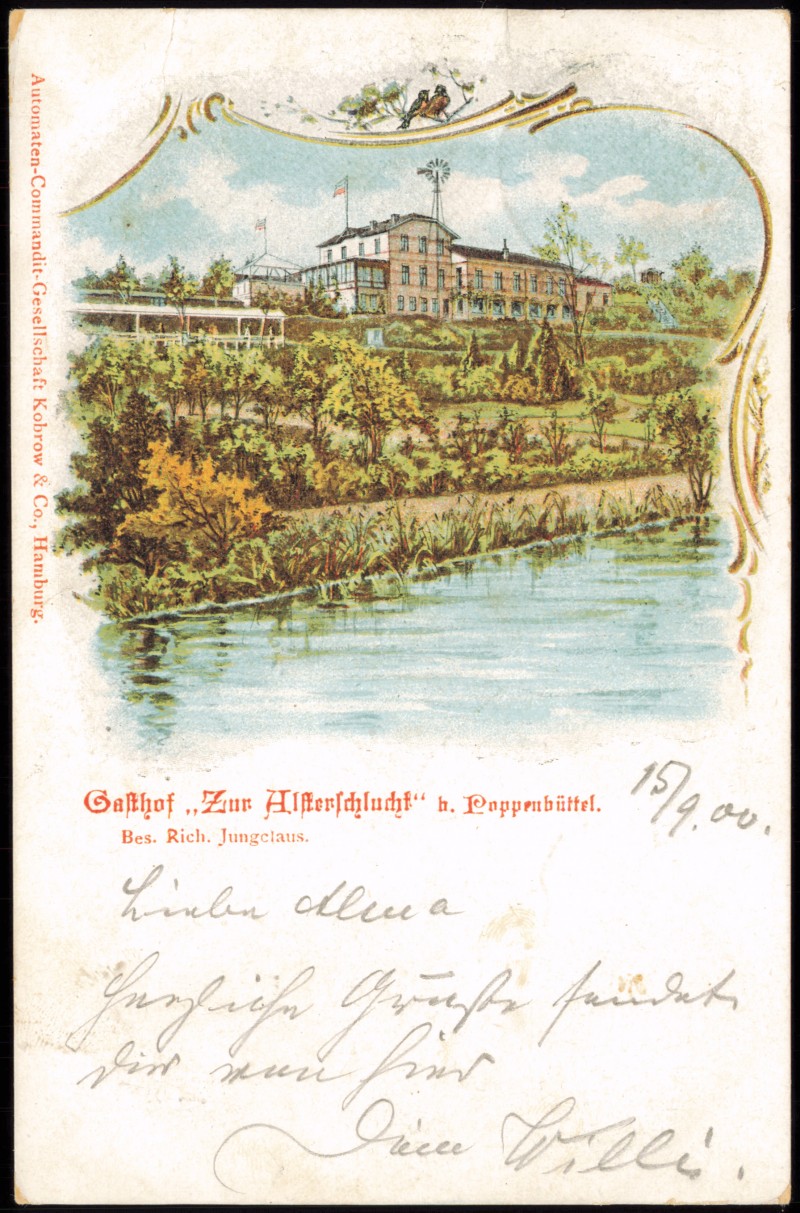 Automaten-Commandit-Gesellschaft Kobrow & Co., Hamburg.
Gasthof „Zur Alsterschlucht“ b. Poppenbüttel.
Bes. Rich. Jungclaus.
15/9.00.
Liebe Alma
Herzliche Grüße sendet
Dir von hier
Dein Willi.